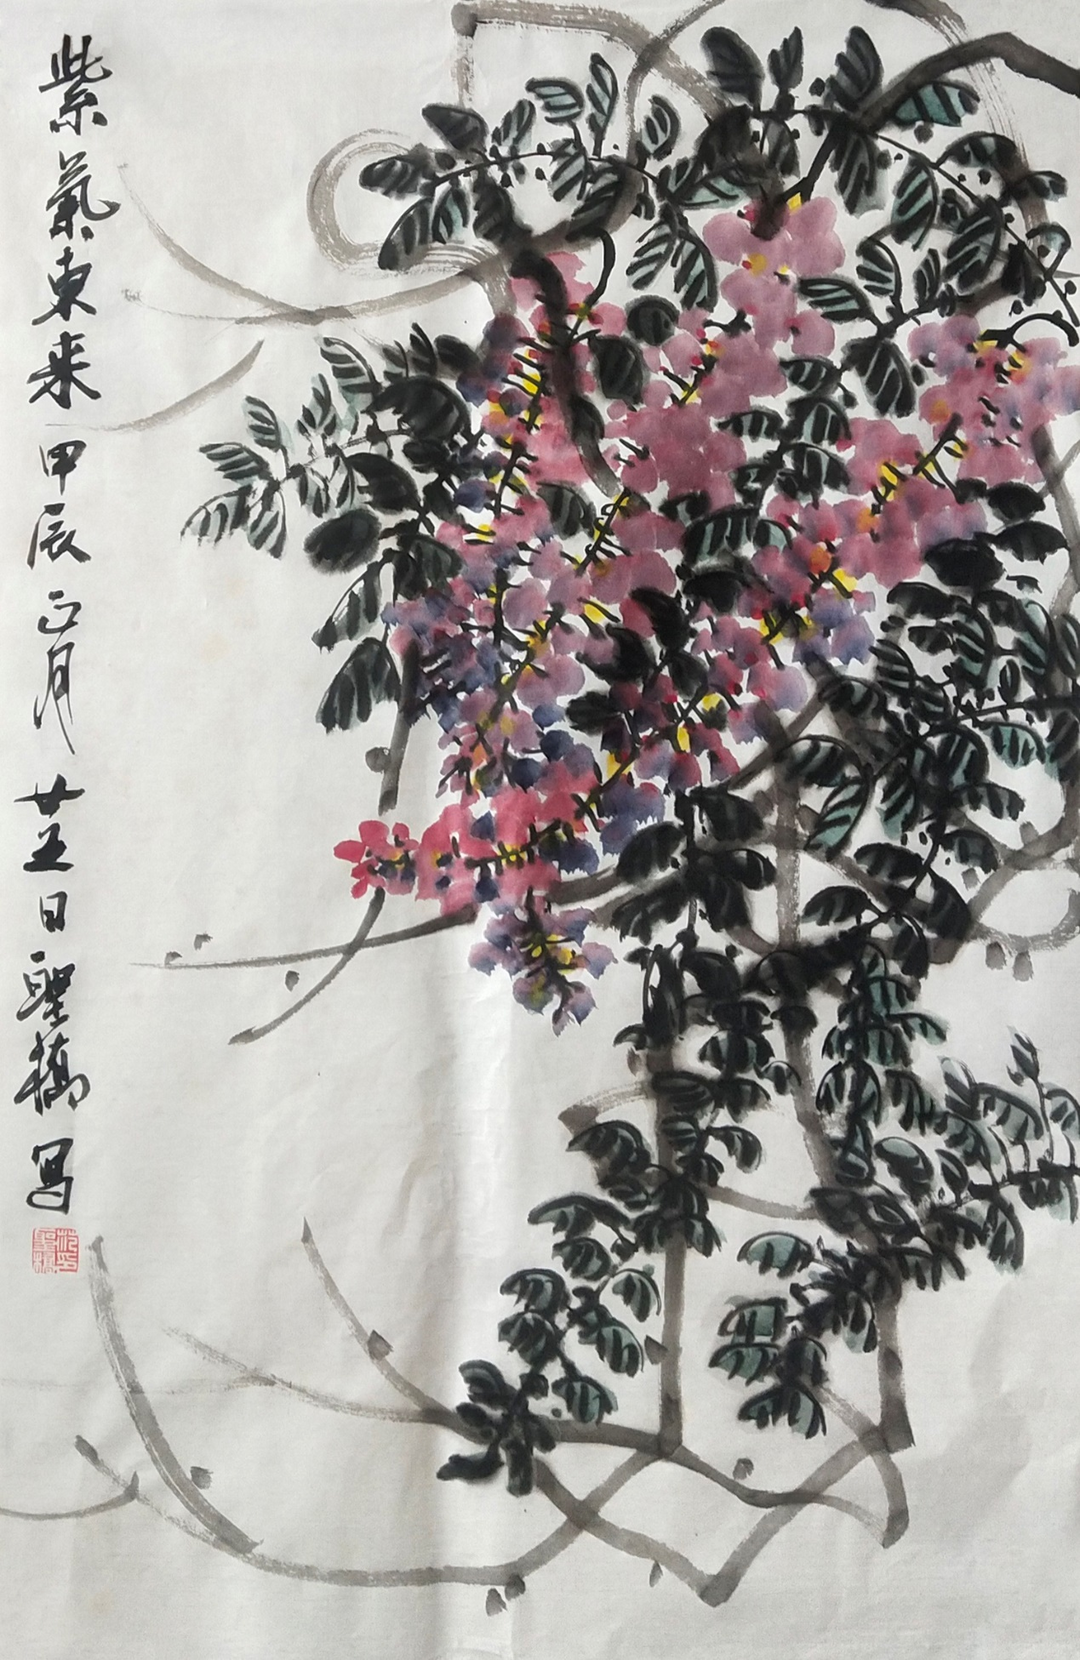 紫氣東来甲辰正月廿五日聖橋写